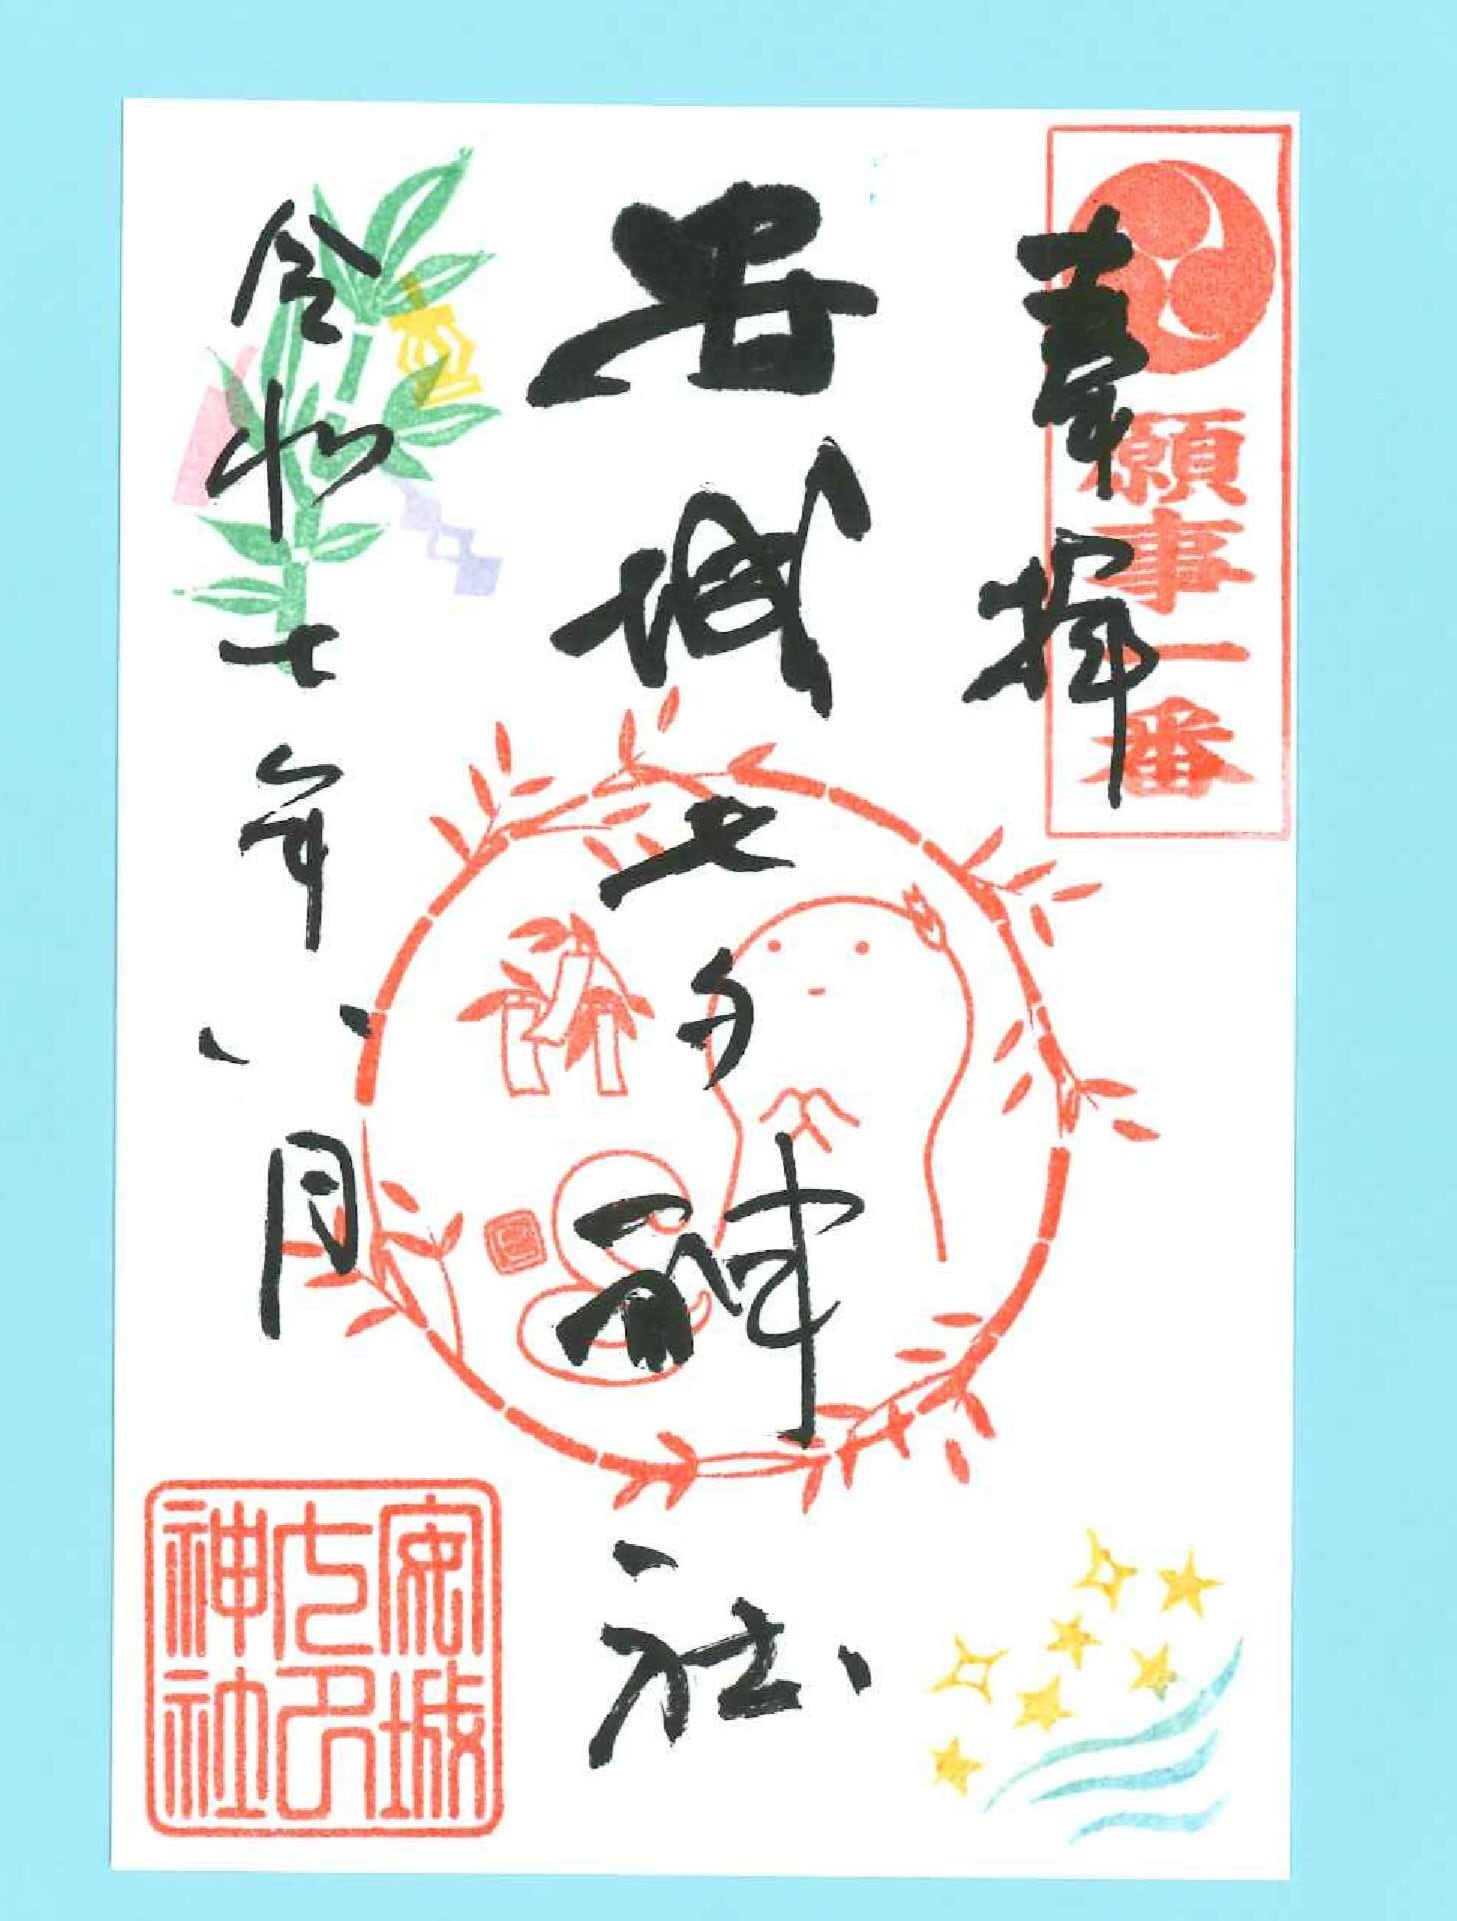 願事一番
奉拝
安城七夕神社
令和七年八月
安城
七夕
神社